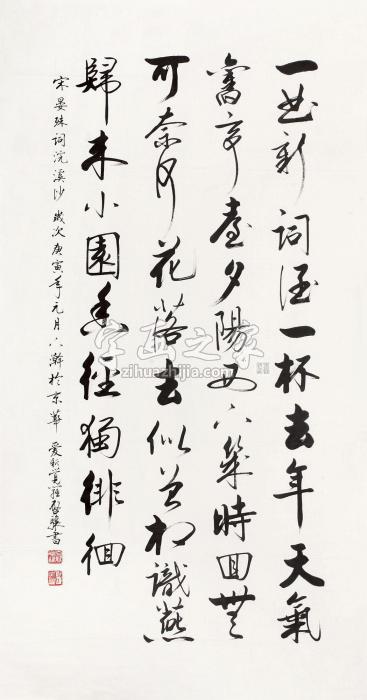 一曲新詞酒一杯去年天氣
舊亭臺夕陽西下幾時回無
可奈何花落去似曾相識燕
歸来小園香徑獨徘徊
宋晏殊詞浣溪沙 歲次庚寅年元月 瀚於京華 愛新覺羅啟驤書
字画之家
zihuazhijia.com